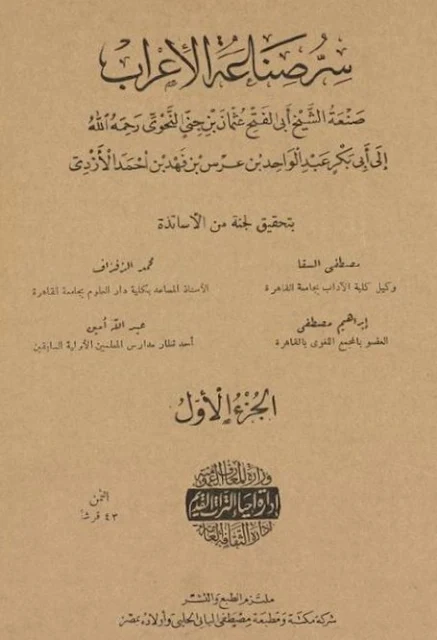 سِرُّ صِنَاعَةِ الإِعْرَابِ
صَنْعَةُ الشَّيْخِ أَبِي الفَتْحِ عُثْمَانَ بْنِ جِنِّي النَّحْوِيّ رَحِمَهُ اللهُ
إِلَى أَبِي بَكْرٍ عَبْدِ الوَاحِدِ بْنِ عَرْسِ بْنِ فَهْدِ بْنِ أَحْمَدَ الأَزْدِيّ
بتحقيق لجنة من الأساتذة
مصطفى السقا
وكيل كلية الآداب بجامعة القاهرة
محمد الزفزاف
الأستاذ المساعد بكلية دار العلوم بجامعة القاهرة
إبراهيم مصطفى
العضو بالمجمع اللغوى بالقاهرة
عبد الله أمين
أحد نظار مدارس المعلمين الأولية السابقين
الجُزْءُ الأَوَّل
وزارة المعارف العمومية
إدارة إحياء التراث القديم
إدارة الثقافة العامة
الثمن
٤٣ قرشا
ملتزم الطبع والنشر
شركة مكتبة ومطبعة مصطفى البابى الحلبى وأولاده بمصر